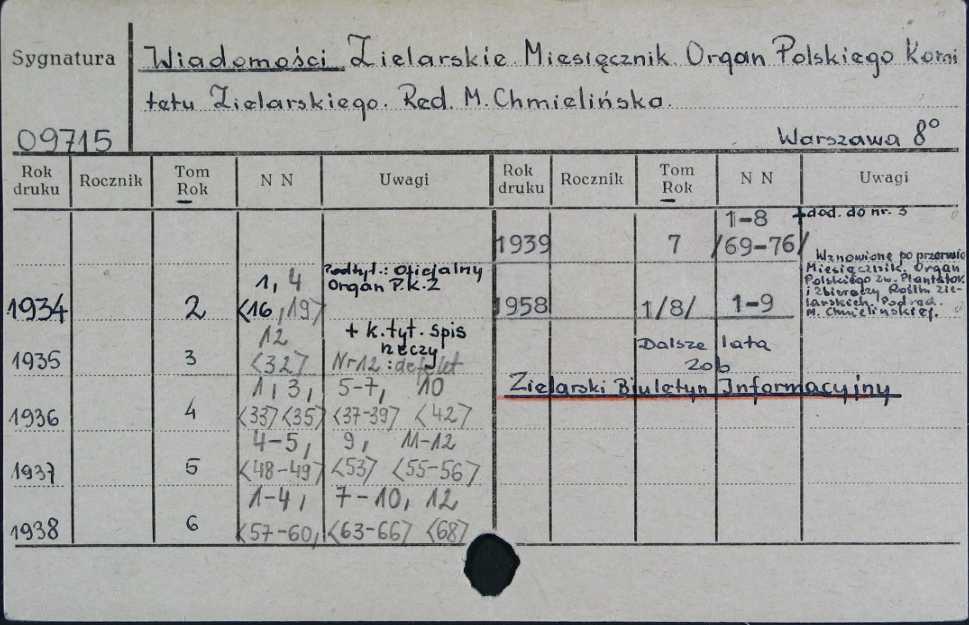 Sygnatura
Wiadomości Zielarskie. Miesięcznik. Organ Polskiego Komi
tetu Zielarskiego. Red. M. Chmielińska.
09715
Warszawa 8°
Rok druku Rocznik Tom Rok N N Uwagi Rok druku Rocznik Tom Rok N N Uwagi
1939 7 1-8 /69-76/ + dod. do nr. 3
1934 2 1, 4 <16, 19> Podtyt.: Oficjalny
Organ P.K.Z
1958 1/8/ 1-9 Wznowione po przerwie
Miesięcznik. Organ
Polskiego Zw. Plantatok
i Zbieraczy Roślin Zie-
larskich. Pod red.
M. Chmielińskiej.
1935 3 12 <32> + k. tyt. spis
rzeczy
Nr 12: defekt
Dalsze lata
zob
Zielarski Biuletyn Informacyjny
1936 4 1, 3, 5-7, 10
<33> <35> <37-39> <42>
1937 5 4-5, 9, 11-12
<48-49> <53> <55-56>
1938 6 1-4, 7-10, 12
<57-60, <63-66> <68>